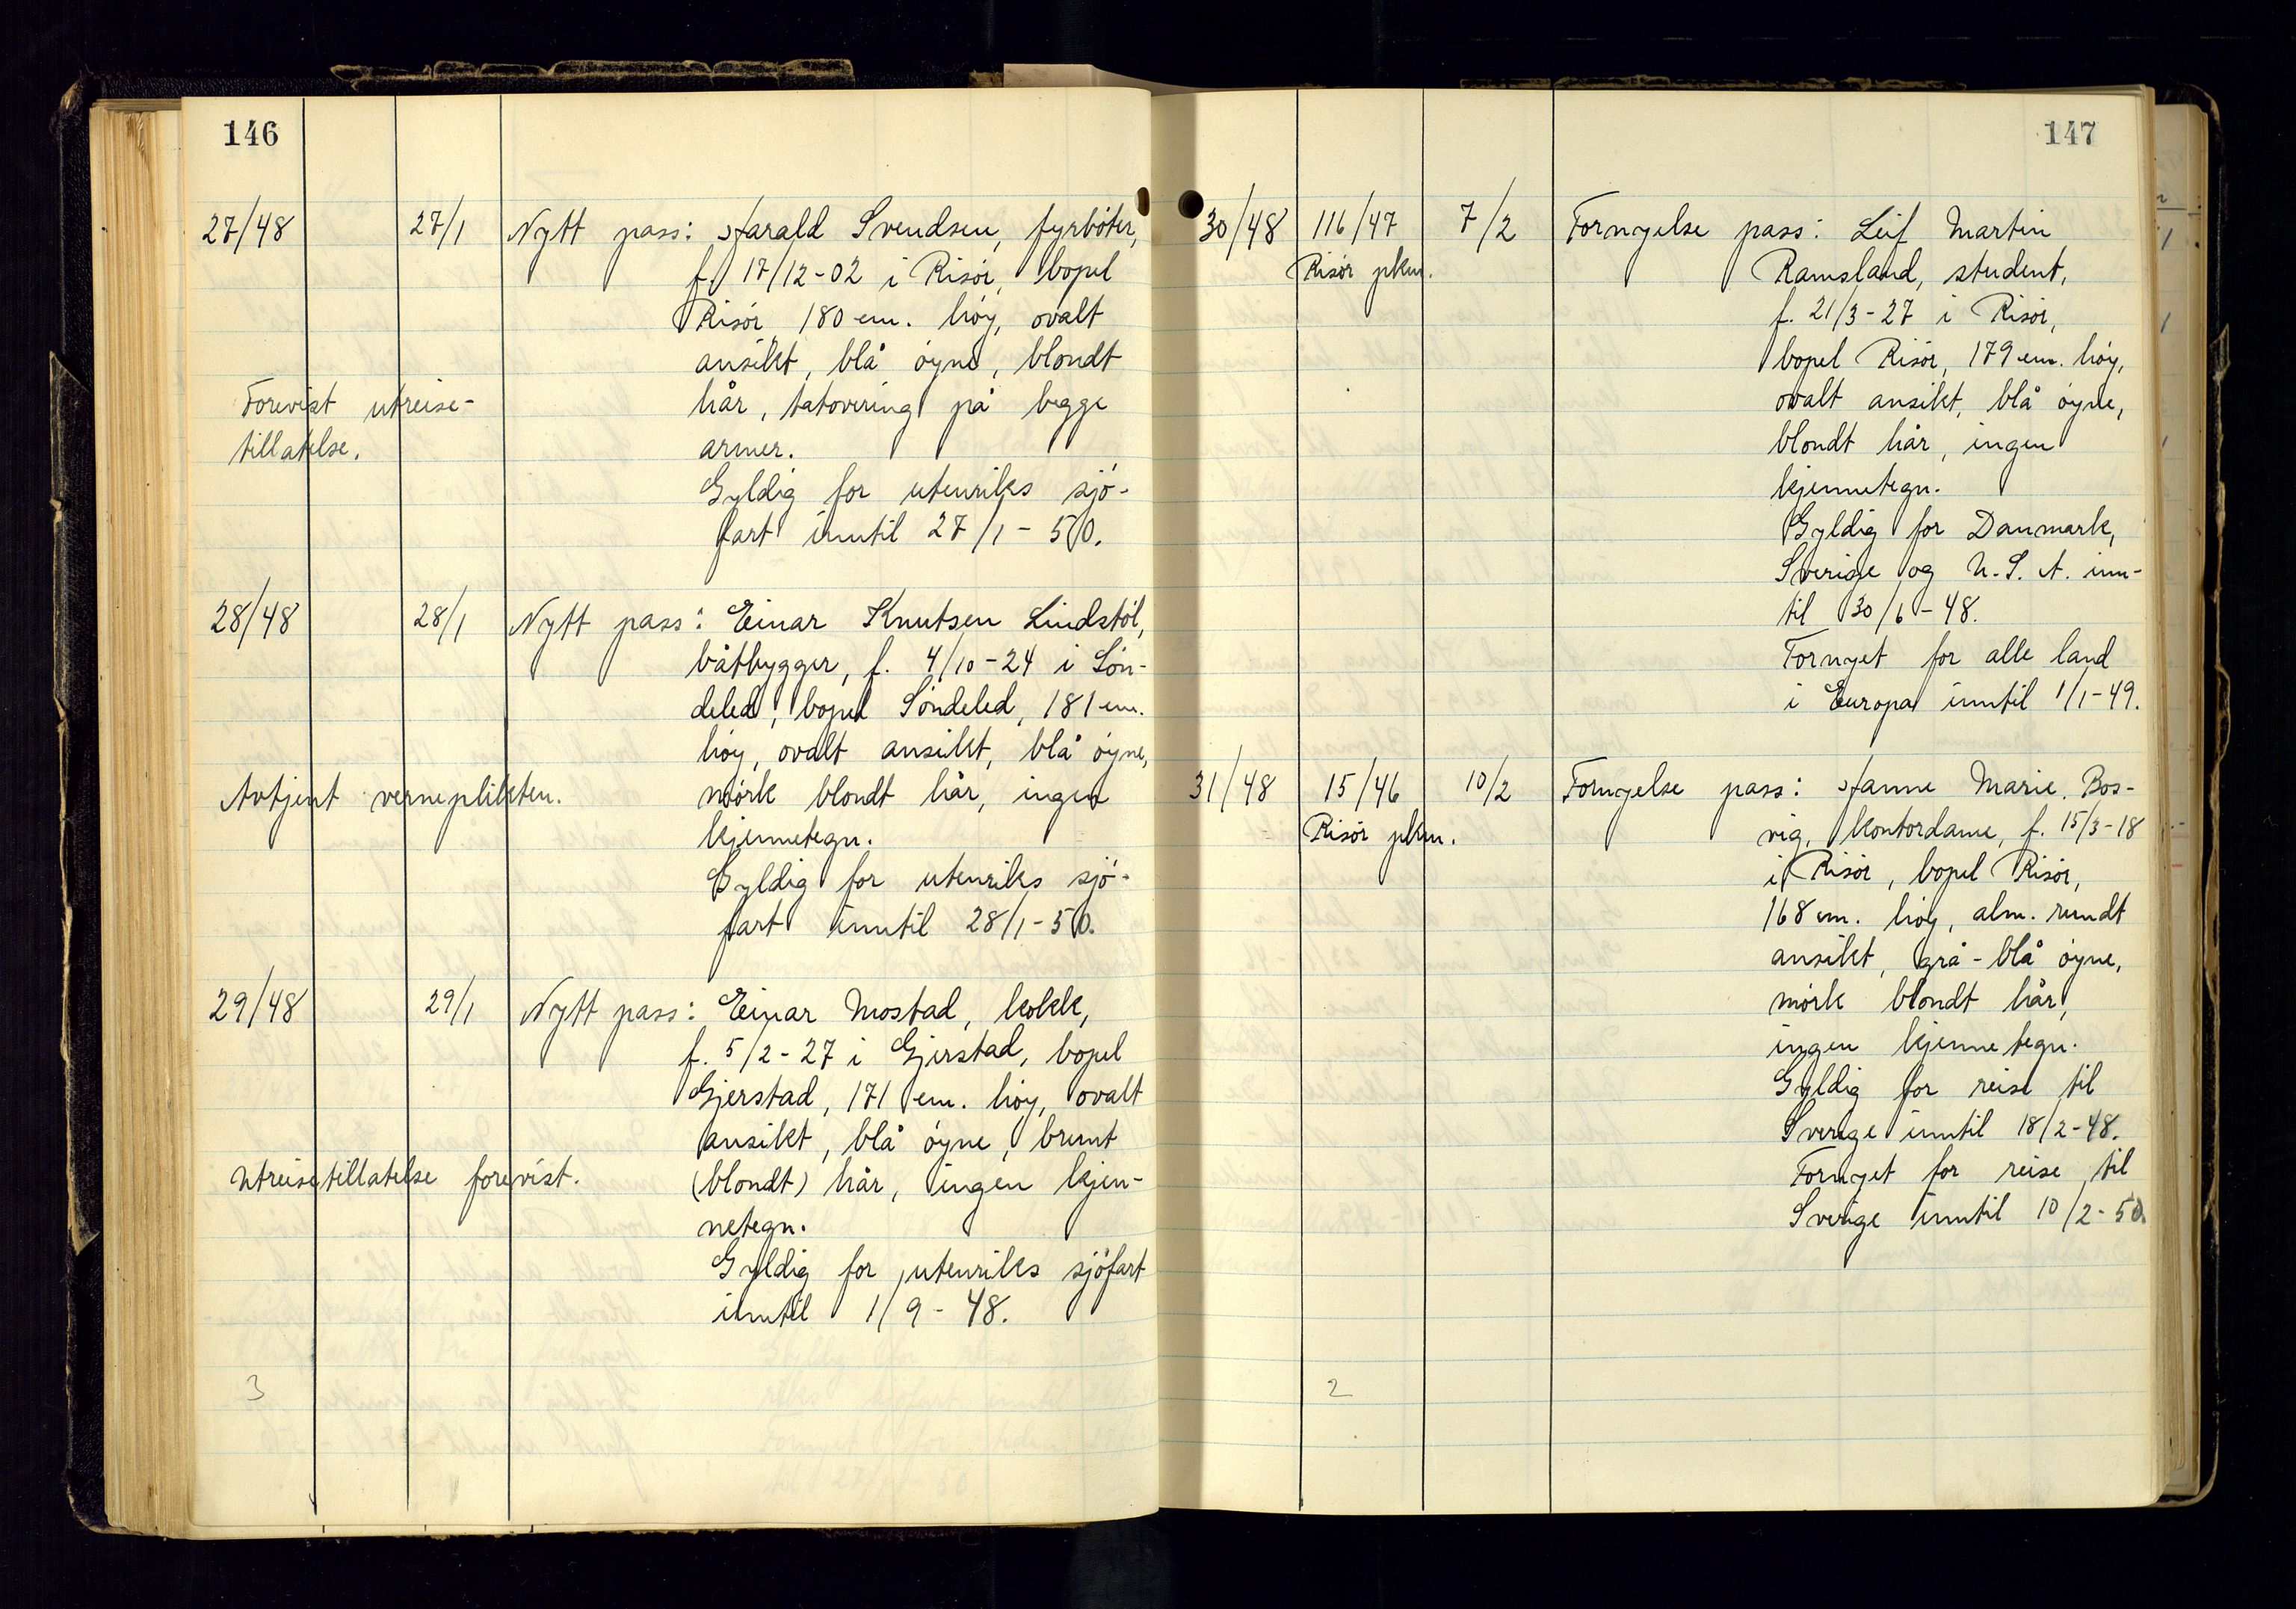 146
27/48 27/1 Nytt pass: Harald Svendsen, fyrböter,
f. 17/12-02 i Risör, bopel
Risör, 180 cm. höy, ovalt
ansikt, blå öyne, blondt
Forevist utreise- hår, tatovering på begge
tillatelse. armer.
Gyldig for utenriks sjö-
fart inntil 27/1-50.
28/48 28/1 Nytt pass: Einar Knutsen Lindstöl,
båtbygger, f. 4/10-24 i Sön-
deled, bopel Söndeled, 181 cm.
höy, ovalt ansikt, blå öyne,
Avtjent verneplikten. mörk blondt hår, ingen
kjennetegn.
Gyldig for utenriks sjö-
fart inntil 28/1-50.
29/48 29/1 Nytt pass: Einar Mostad, kokk,
f. 5/2-27 i Gjerstad, bopel
Gjerstad, 171 cm. höy, ovalt
ansikt, blå öyne, brunt
Utreisetillatelse forevist. (blondt) hår, ingen kjen-
netegn.
Gyldig for utenriks sjöfart
inntil 1/9-48.
3
147
30/48 116/47 7/2 Fornyelse pass: Leif Martin
Risör pkm. Ramsland, student,
f. 21/3-27 i Risör,
bopel Risör, 179 cm. höy,
ovalt ansikt, blå öyne,
blondt hår, ingen
kjennetegn.
Gyldig for Danmark,
Sverige og U.S.A. inn-
til 30/6-48.
Fornyet for alle land
i Europa inntil 1/1-49.
31/48 15/46 10/2 Fornyelse pass: Hanne Marie Bos-
Risör pkm. vig, kontordame, f. 15/3-18
i Risör, bopel Risör,
168 cm. höy, alm. rundt
ansikt, grå-blå öyne,
mörk blondt hår,
ingen kjennetegn.
Gyldig for reise til
Sverige inntil 18/2-48.
Fornyet for reise til
Sverige inntil 10/2-50.
2